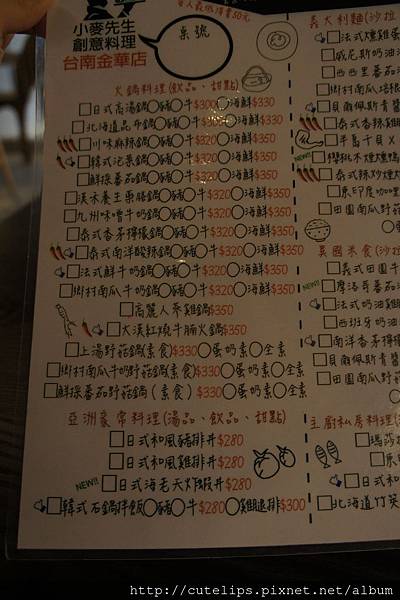 小麥先生
創意料理
台南金華店
桌號
火鍋料理(飲品、甜點)
□日式高湯鍋○豬○牛$300○海鮮$330
□北海道昆布鍋○豬○牛
□川味麻辣鍋○豬○牛$320○海鮮$350
□韓式泡菜鍋○豬○牛$320○海鮮$350
□鮮採番茄鍋○豬○牛$320○海鮮$350
○豬○牛$320○海鮮$350
□九州味噌牛奶鍋○豬○牛$320○海鮮$350
□泰式香茅檸檬鍋○豬○牛$320○海鮮$350
□泰式南洋酸辣鍋○豬○牛$320○海鮮$350
□法式鮮牛奶鍋○豬○牛$320○海鮮$350
□鄉村南瓜牛奶鍋○豬○牛$320○海鮮$350
□高麗人參雞鍋$350
□大漠紅燒牛腩火鍋$350
□上湯野菇鍋(素食)$330○蛋奶素○全素
□鄉村南瓜牛奶野菇鍋(素食)$330○蛋奶素
□鮮採番茄野菇鍋(素食)$330○蛋奶素○全素
亞洲家常料理(湯品、飲品、甜點)
□日式和風豬排丼$280
□日式和風雞排丼$280
NEW!! □日式海老天炸蝦丼$280
□韓式石鍋拌飯○豬○牛$280○雞腿排$300
義大利麵(沙拉
□法式燻雞蛋
□威尼斯奶油
□西西里番茄
□鄉村南瓜培根
□貝爾佩斯青醬
□泰式香辣雞
□半島干貝X
NEW!!
□泰式辣炒
□東印度咖哩
□田園南瓜野菇
異國米食(沙拉
□義式田園牛
NEW!! □摩洛哥番茄
□法式奶油雞
□西班牙奶油
□南洋香茅檸檬
□貝爾佩斯青醬
□田園南瓜野菇
主廚私房料理(
□瑪莎
□日式和
□北海道竹莢
http://cutelips.pixnet.net/album